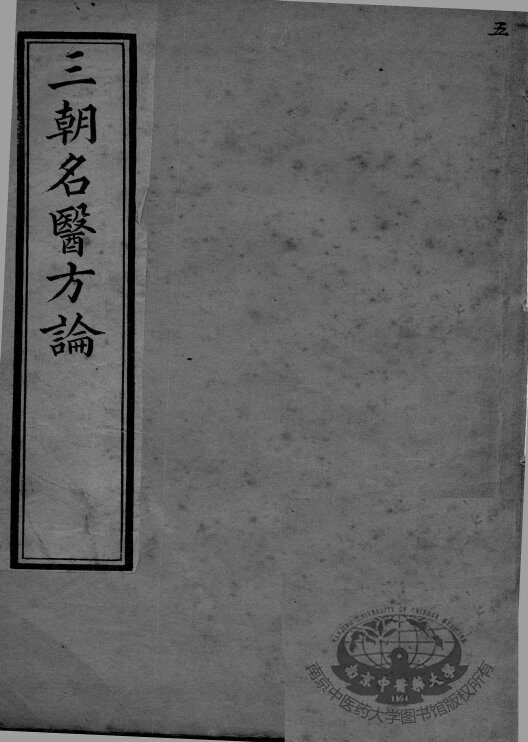 五
三朝名醫方論
NANJING UNIVERSITY OF CHINESE MEDICINE
南京中醫藥大學
1954
南京中医药大学图书馆版权所有